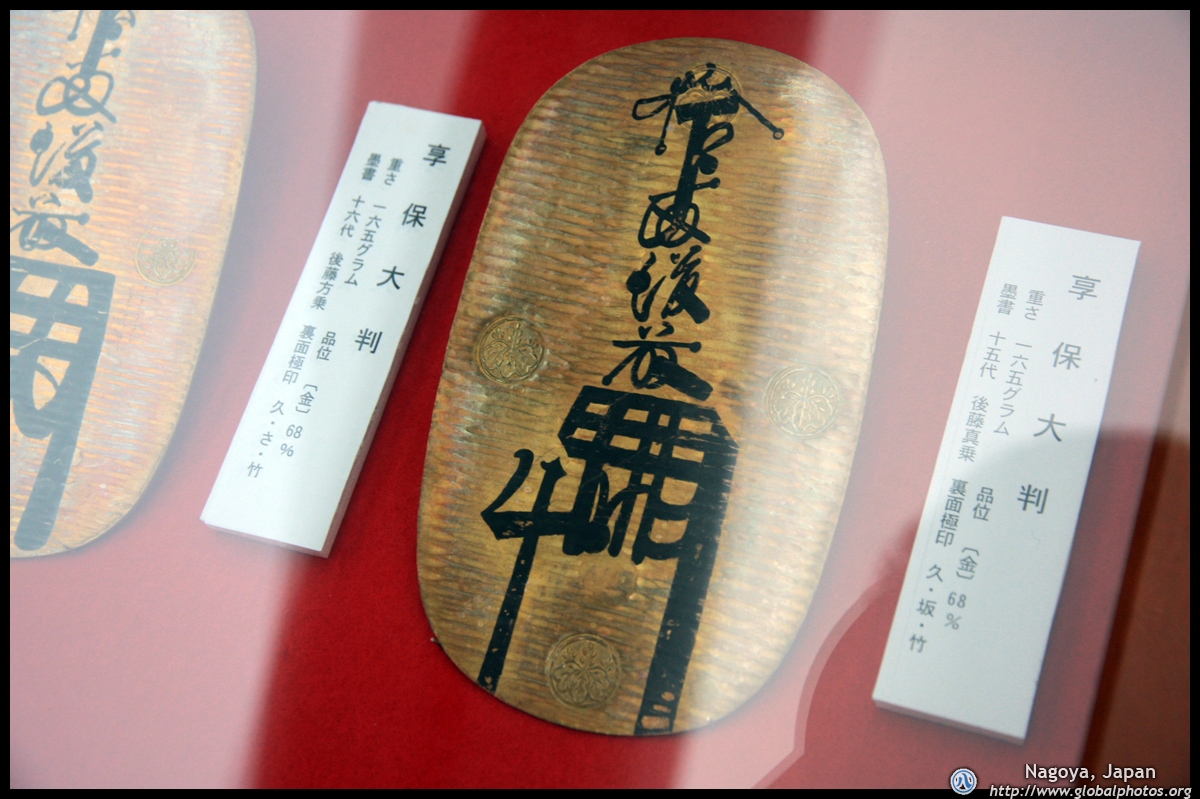 享保大判
重さ 一六五グラム 品位 〔金〕68%
墨書 十六代 後藤方乗 裏面極印 久・さ・竹
拾両後藤
享保大判
重さ 一六五グラム 品位 〔金〕68%
墨書 十五代 後藤真乗 裏面極印 久・坂・竹
Nagoya, Japan
http://www.globalphotos.org